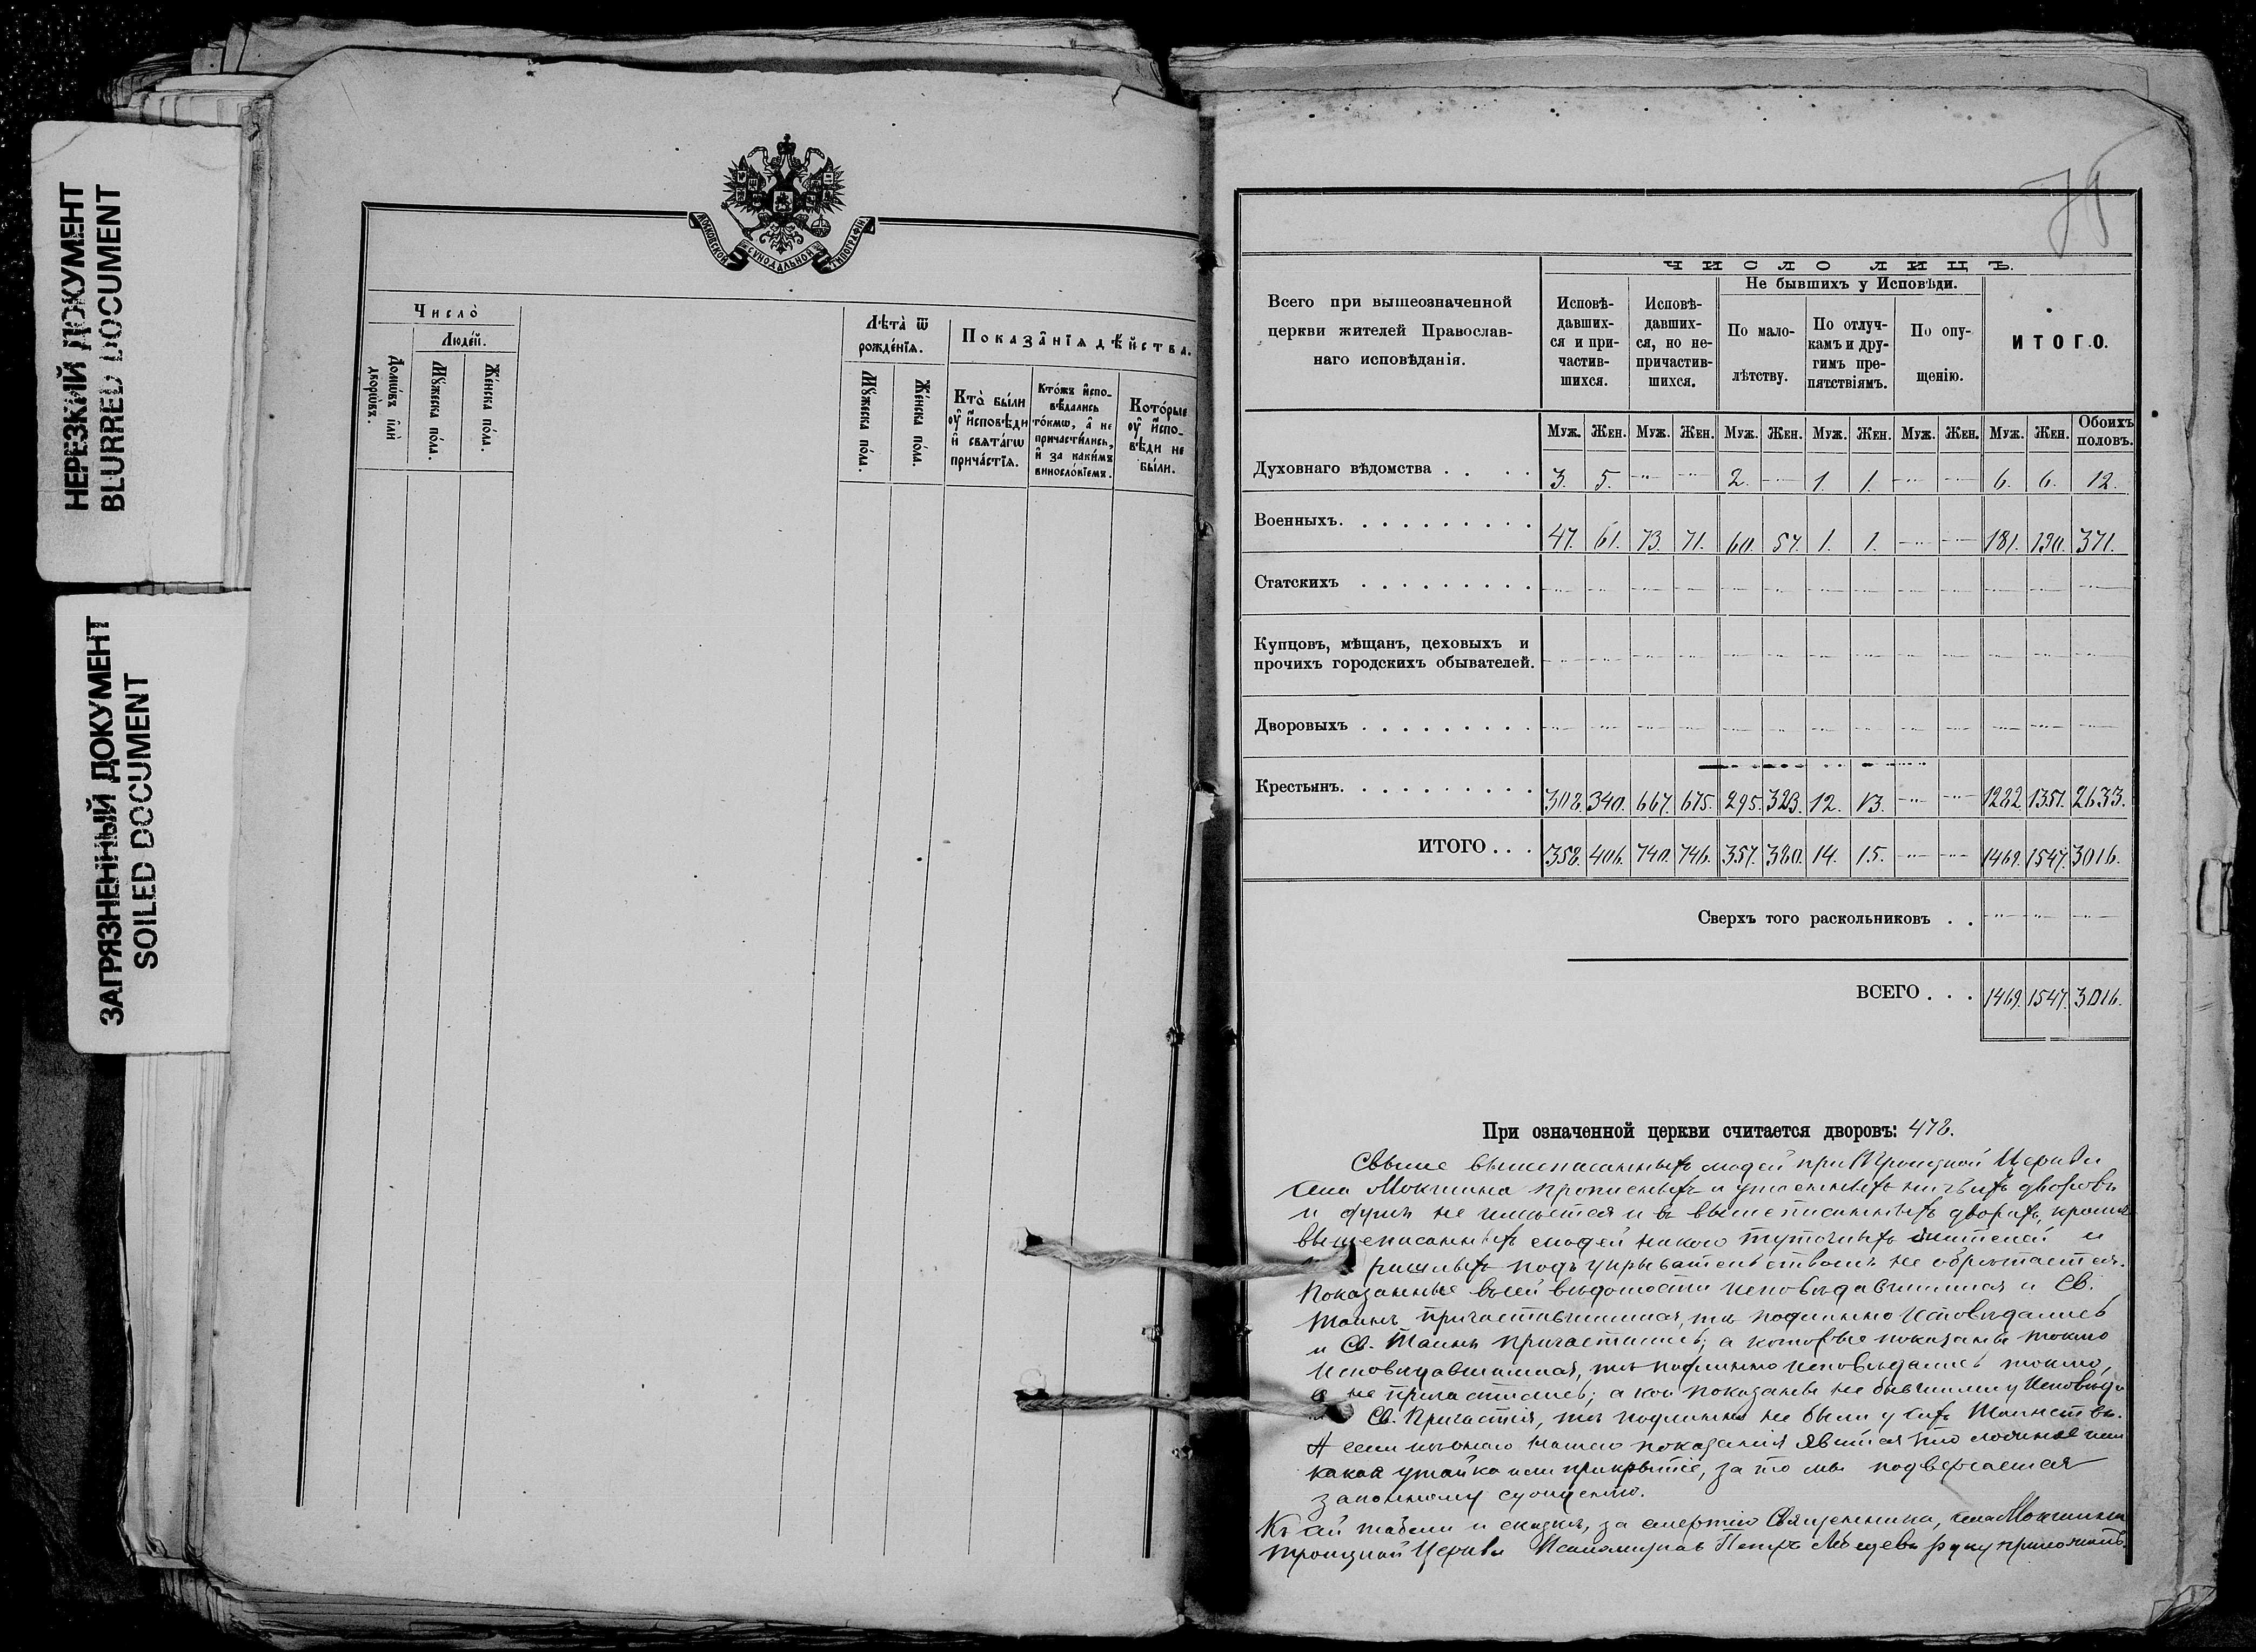 НЕРЕЗКИЙ ДОКУМЕНТ
BLURRED DOCUMENT
ЗАГРЯЗНЕННЫЙ ДОКУМЕНТ
SOILED DOCUMENT
МОСКОВСКОЙ СѴНОДАЛЬНОЙ ТИПОГРАФІИ
Число̀
Люде́й.
Домѡ́въ и҆лѝ дворѡ́въ.
Мꙋ́жеска по́ла.
Же́нска по́ла.
Лѣта̀ ѿ рожде́нїѧ.
Мꙋ́жеска по́ла.
Же́нска по́ла.
Показа̑нїѧ дѣ́йства.
Кто̀ бы́ли ᲂу҆ и҆́сповѣди и҆ свѧта́гѡ прича́стїѧ.
Кто́жъ и҆сповѣ́дались то́кмѡ, а҆ не причасти́лись, и҆ за каки́мъ виносло́вїемъ.
Кото́рые ᲂу҆ и҆́сповѣди не бы́ли.
75
Всего при вышеозначенной церкви жителей Православнаго исповѣданія.
ЧИСЛО ЛИЦЪ.
Исповѣдавшихся и причастившихся.
Исповѣдавшихся, но непричастившихся.
Не бывшихъ у Исповѣди.
По малолѣтству.
По отлучкамъ и другимъ препятствіямъ.
По опущенію.
ИТОГО.
Муж. Жен. Муж. Жен. Муж. Жен. Муж. Жен. Муж. Жен. Муж. Жен. Обоихъ половъ.
Духовнаго вѣдомства . . . . 3. 5. — — 2. — 1. 1. — — 6. 6. 12.
Военныхъ. . . . . . . . . . 47. 61. 73. 71. 60. 57. 1. 1. — — 181. 190. 371.
Статскихъ . . . . . . . . . — — — — — — — — — — — — —
Купцовъ, мѣщанъ, цеховыхъ и
прочихъ городскихъ обывателей. — — — — — — — — — — — — —
Дворовыхъ . . . . . . . . . — — — — — — — — — — — — —
Крестьянъ. . . . . . . . . . 308. 340. 667. 675. 295. 323. 12. 13. — — 1282. 1351. 2633.
ИТОГО . . . 358. 406. 740. 746. 357. 380. 14. 15. — — 1469. 1547. 3016.
Сверхъ того раскольниковъ . . — — —
ВСЕГО . . . 1469. 1547. 3016.
При означенной церкви считается дворовъ: 478.
Свыше вышеписанныхъ людей при Троицкой Церкви
села Мокшина прописныхъ и утаенныхъ ничьихъ дворовъ
и душъ не имѣется и въ вышеписанныхъ дворахъ, кромѣ
вышеписанныхъ людей никого тутошнихъ жителей и
подъ укрывательствомъ не обрѣтается.
Показанные въ сей вѣдомости исповѣдавшимися и Св.
Таинъ причастившимися, тѣ подлинно исповѣдались
и Св. Таинъ причастились; а которые показаны токмо
исповѣдавшимися, тѣ подлинно исповѣдались токмо,
а не причастились; а кои показаны не бывшими у Исповѣди
Св. Причастія, тѣ подлинно не были у сихъ Таинствъ.
А если изъ онаго нашего показанія явится что ложное или
какая утайка или прикрытіе, за то мы подвергаемся
законному сужденію.
Къ сей табели и сказкѣ, за смертію Священника, села Мокшина
Троицкой Церкви Псаломщикъ Петръ руку приложилъ.